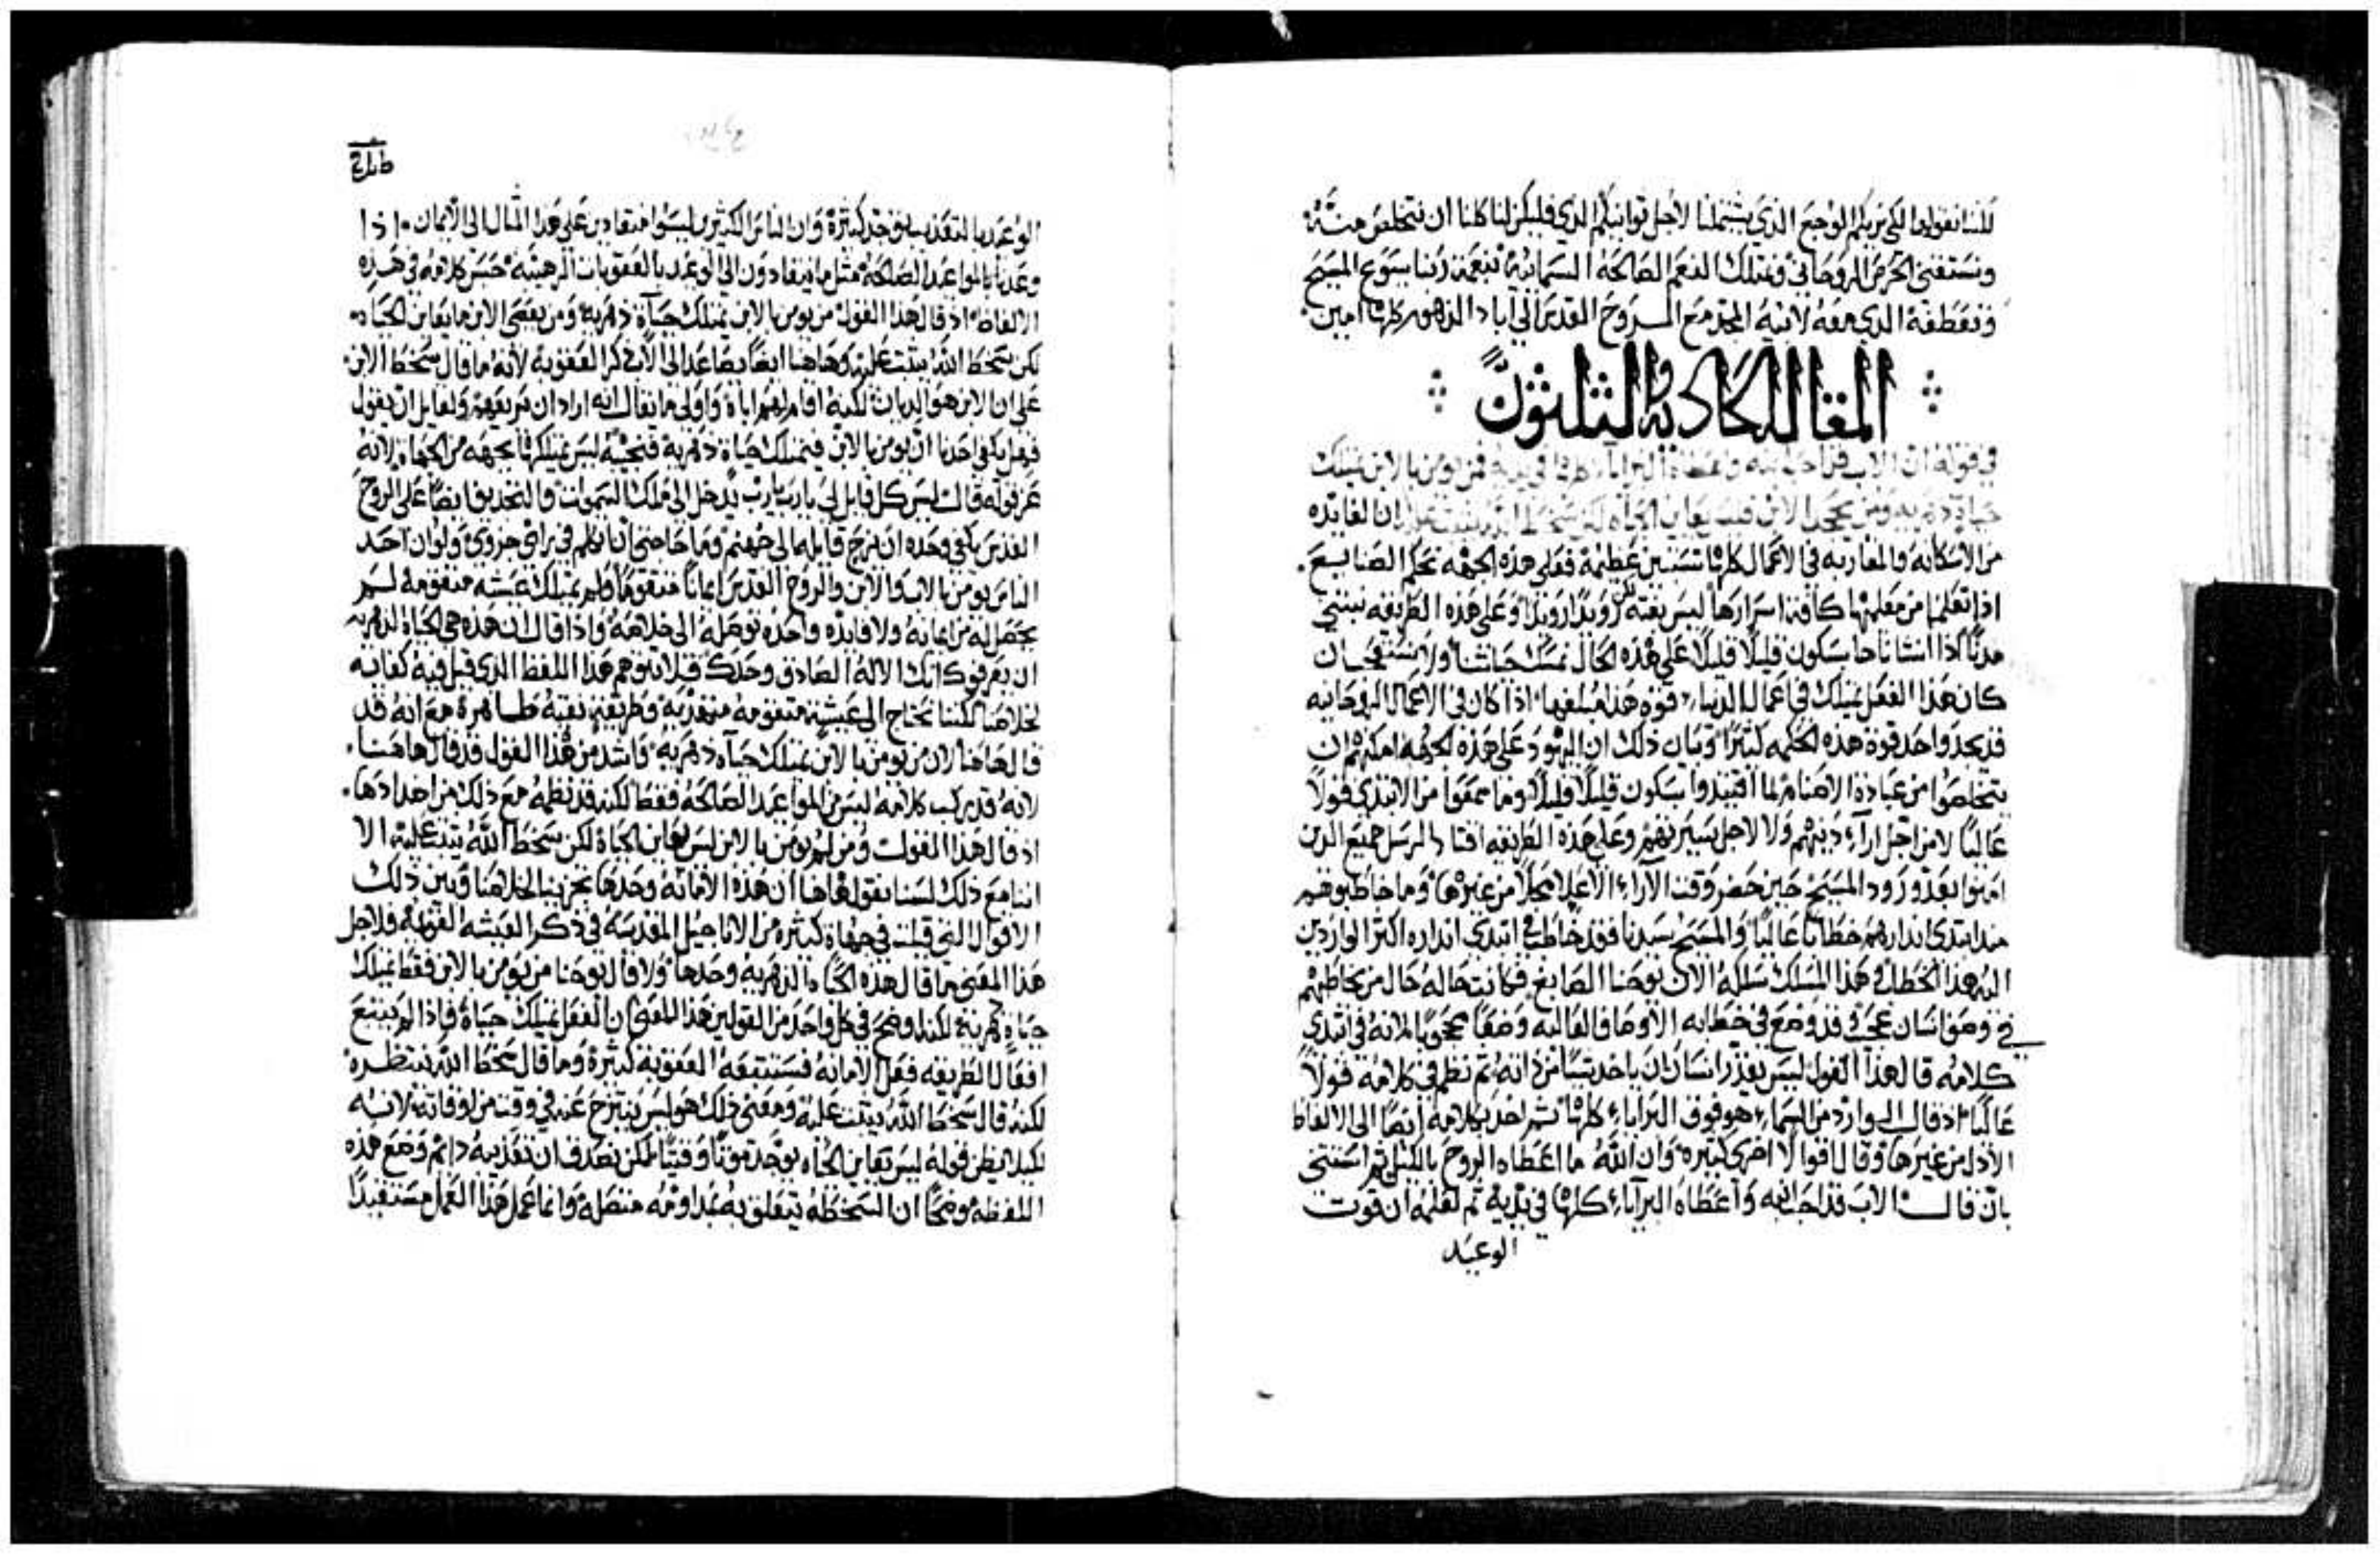 لكننا نقولها لكي نريكم الوجع الذي يشتملنا لاجل توانيكم الذي فليكن لنا كلنا ان نتخلص منه
ونستفني الحرص الروحاني ونمتلك النعم الصالحه السمائيه بنعمة ربنا يسوع المسيح
وتعطفه الذي معه لابيه المجد مع الروح القدس الى اباد الدهور كلها امين
المقاله الحاديه والثلثون
في قوله ان الاب قد احب ابنه واعطاه البرايا كلها في يده فمن يومن بالابن يمتلك
حياة دهريه ومن يجحد الابن فليس يعاين الحياه لكن سخط الله يثبت عليه ان الفايده
من الاستكانه والمقاربه في الاعمال كلها تستبين عظيمه فعلى هذه الجهه نحكم الصنايع
اذا تعلمنا من معلميها كافة اسرارها ليس بغته لكن رويدا رويدا وعلى هذه الطريقه نبتني
مدنا اذا انشاناها بسكون قليلا قليلا على هذه الحال نمسك حياتنا ولا تستعجبان
كان هذا الفعل يمتلك في اعمال الدنيا قوه هذا مبلغها اذا كان في الاعمال الروحانيه
قد يجد واحد قوة هذه الحكمه كثيرا وبيان ذلك ان اليهود على هذه الجهه امكنهم ان
يتخلصوا من عبادة الاصنام لما اقتيدوا بسكون قليلا قليلا وما سمعوا من الابتدي قولا
عاليا لا من اجل اراء دينهم ولا لاجل سيرتهم وعلى هذه الطريقه اقتاد الرسل جميع الذين
امنوا بعد ورود المسيح حين حضر وقت الآراء الاعلا محلا من غيرها وما خاطبوهم
منذ ابتدى انذارهم خطابا عاليا والمسيح سيدنا فقد خاطب في ابتدى انذاره اكثر الواردين
اليه هذا الخطاب وهذا المسلك سلكه الان يوحنا الصابغ فكانت حاله حال من يخاطبهم
في وصف انسان عجيب قد وضع في خطابه الاوصاف العاليه وضعا محجوبا لانه في ابتدى
كلامه قال هذا القول ليس يقدر انسان ان ياخذ شيا من ذاته ثم نظم في كلامه قولا
عاليا اذ قال الوارد من السماء هو فوق البرايا كلها ثم احدر كلامه ايضا الى الالفاظ
الاذل من غيرها وقال اقوالا اخرى كثيره وان الله ما اعطاه الروح بالكيل ثم استثنى
بان قال الاب قد احب ابنه واعطاه البرايا كلها في يديه ثم لعلمه ان قوت
الوعيد
الوعيد بالتعذيب توجد كثيرة وان الناس الكثيرين ليسوا منقادين على هذا المثال الى الايمان اذا
وعدنا بالمواعد الصالحه مثل ما ينقادون الى الوعيد بالعقوبات الرهيبه حسم كلامه في هذه
الالفاظ اذ قال هذا القول من يومن بالابن يمتلك حياة دهريه ومن يعصي الابن ما يعاين الحياه
لكن سخط الله يثبت عليه وهاهنا ايضا يصاعد الى الاب ذكر العقوبه لانه ما قال سخط الابن
على ان الابن هو الديان لكنه اقام لهم اباه واولى ما يقال انه اراد ان يريعهم ولقايل ان يقول
فهل يكفي احدنا ان يومن بالابن فيمتلك حياة دهريه فنجيبه ليس يمتلكها بجهه من الجهات لانه
عز قوله قال ليس كل قايل لي يارب يارب يدخل الى ملك السموات والتجديف ايضا على الروح
القدس يكفي وحده ان يزج قايله الى جهنم وما حاجتي ان اتكلم في راي جزوي ولو ان احد
الناس يومن بالاب والابن والروح القدس ايمانا متقوما ولم يمتلك عيشه متقومه لم
يحصل له من ايمانه ولا فايده واحده توصله الى خلاصه واذا قال ان هذه هي الحياة الدهريه
ان يعرفوك انك الاله الصادق وحدك فلا نتوهم هذا اللفظ الذي قيل فيه كفايه
لخلاصنا لكننا نحتاج الى عيشة متقومه متهذبه وطريقة نقيه طاهرة مع انه قد
قال هاهنا لان من يومن بالابن يمتلك حياه دهريه واشد من هذا القول قد قال هاهنا
لانه قد يركب كلامه ليس من المواعد الصالحه فقط لكنه قد نظمه مع ذلك من اضدادها
اذ قال هذا القول ومن لم يومن بالابن ليس يعاين الحياة لكن سخط الله يثبت عليه الا
اننا مع ذلك لسنا نقول هاهنا ان هذه الامانه وحدها تجزينا لخلاصنا وتبين ذلك
الاقوال التي قيلت في جهات كثيره من الاناجيل المقدسه في ذكر العيشه القويمه فلاجل
هذا المعنى ما قال هذه الحياه الدهريه وحدها ولا قال يوحنا من يومن بالابن فقط يمتلك
حياه دهريه لكنه اوضح في كل واحد من القولين هذا المعنى ان الفعل يمتلك حياة فاذا لم يتبع
افعال الطريقه فعل الامانه فستتبعه العقوبه كثيرة وما قال سخط الله ينتظره
لكنه قال سخط الله يثبت عليه ومعنى ذلك هو ليس ينتزح عنه في وقت من اوقاته لانه
لكيلا تظن قوله ليس يعاين الحياه يوجد موتا وقتيا لكن تصدق ان تعذيبه دايم وضع هذه
اللفظه موضحا ان السخطه يتعلق به مداومه متصله وانما عمل هذا العمل مستفيدا